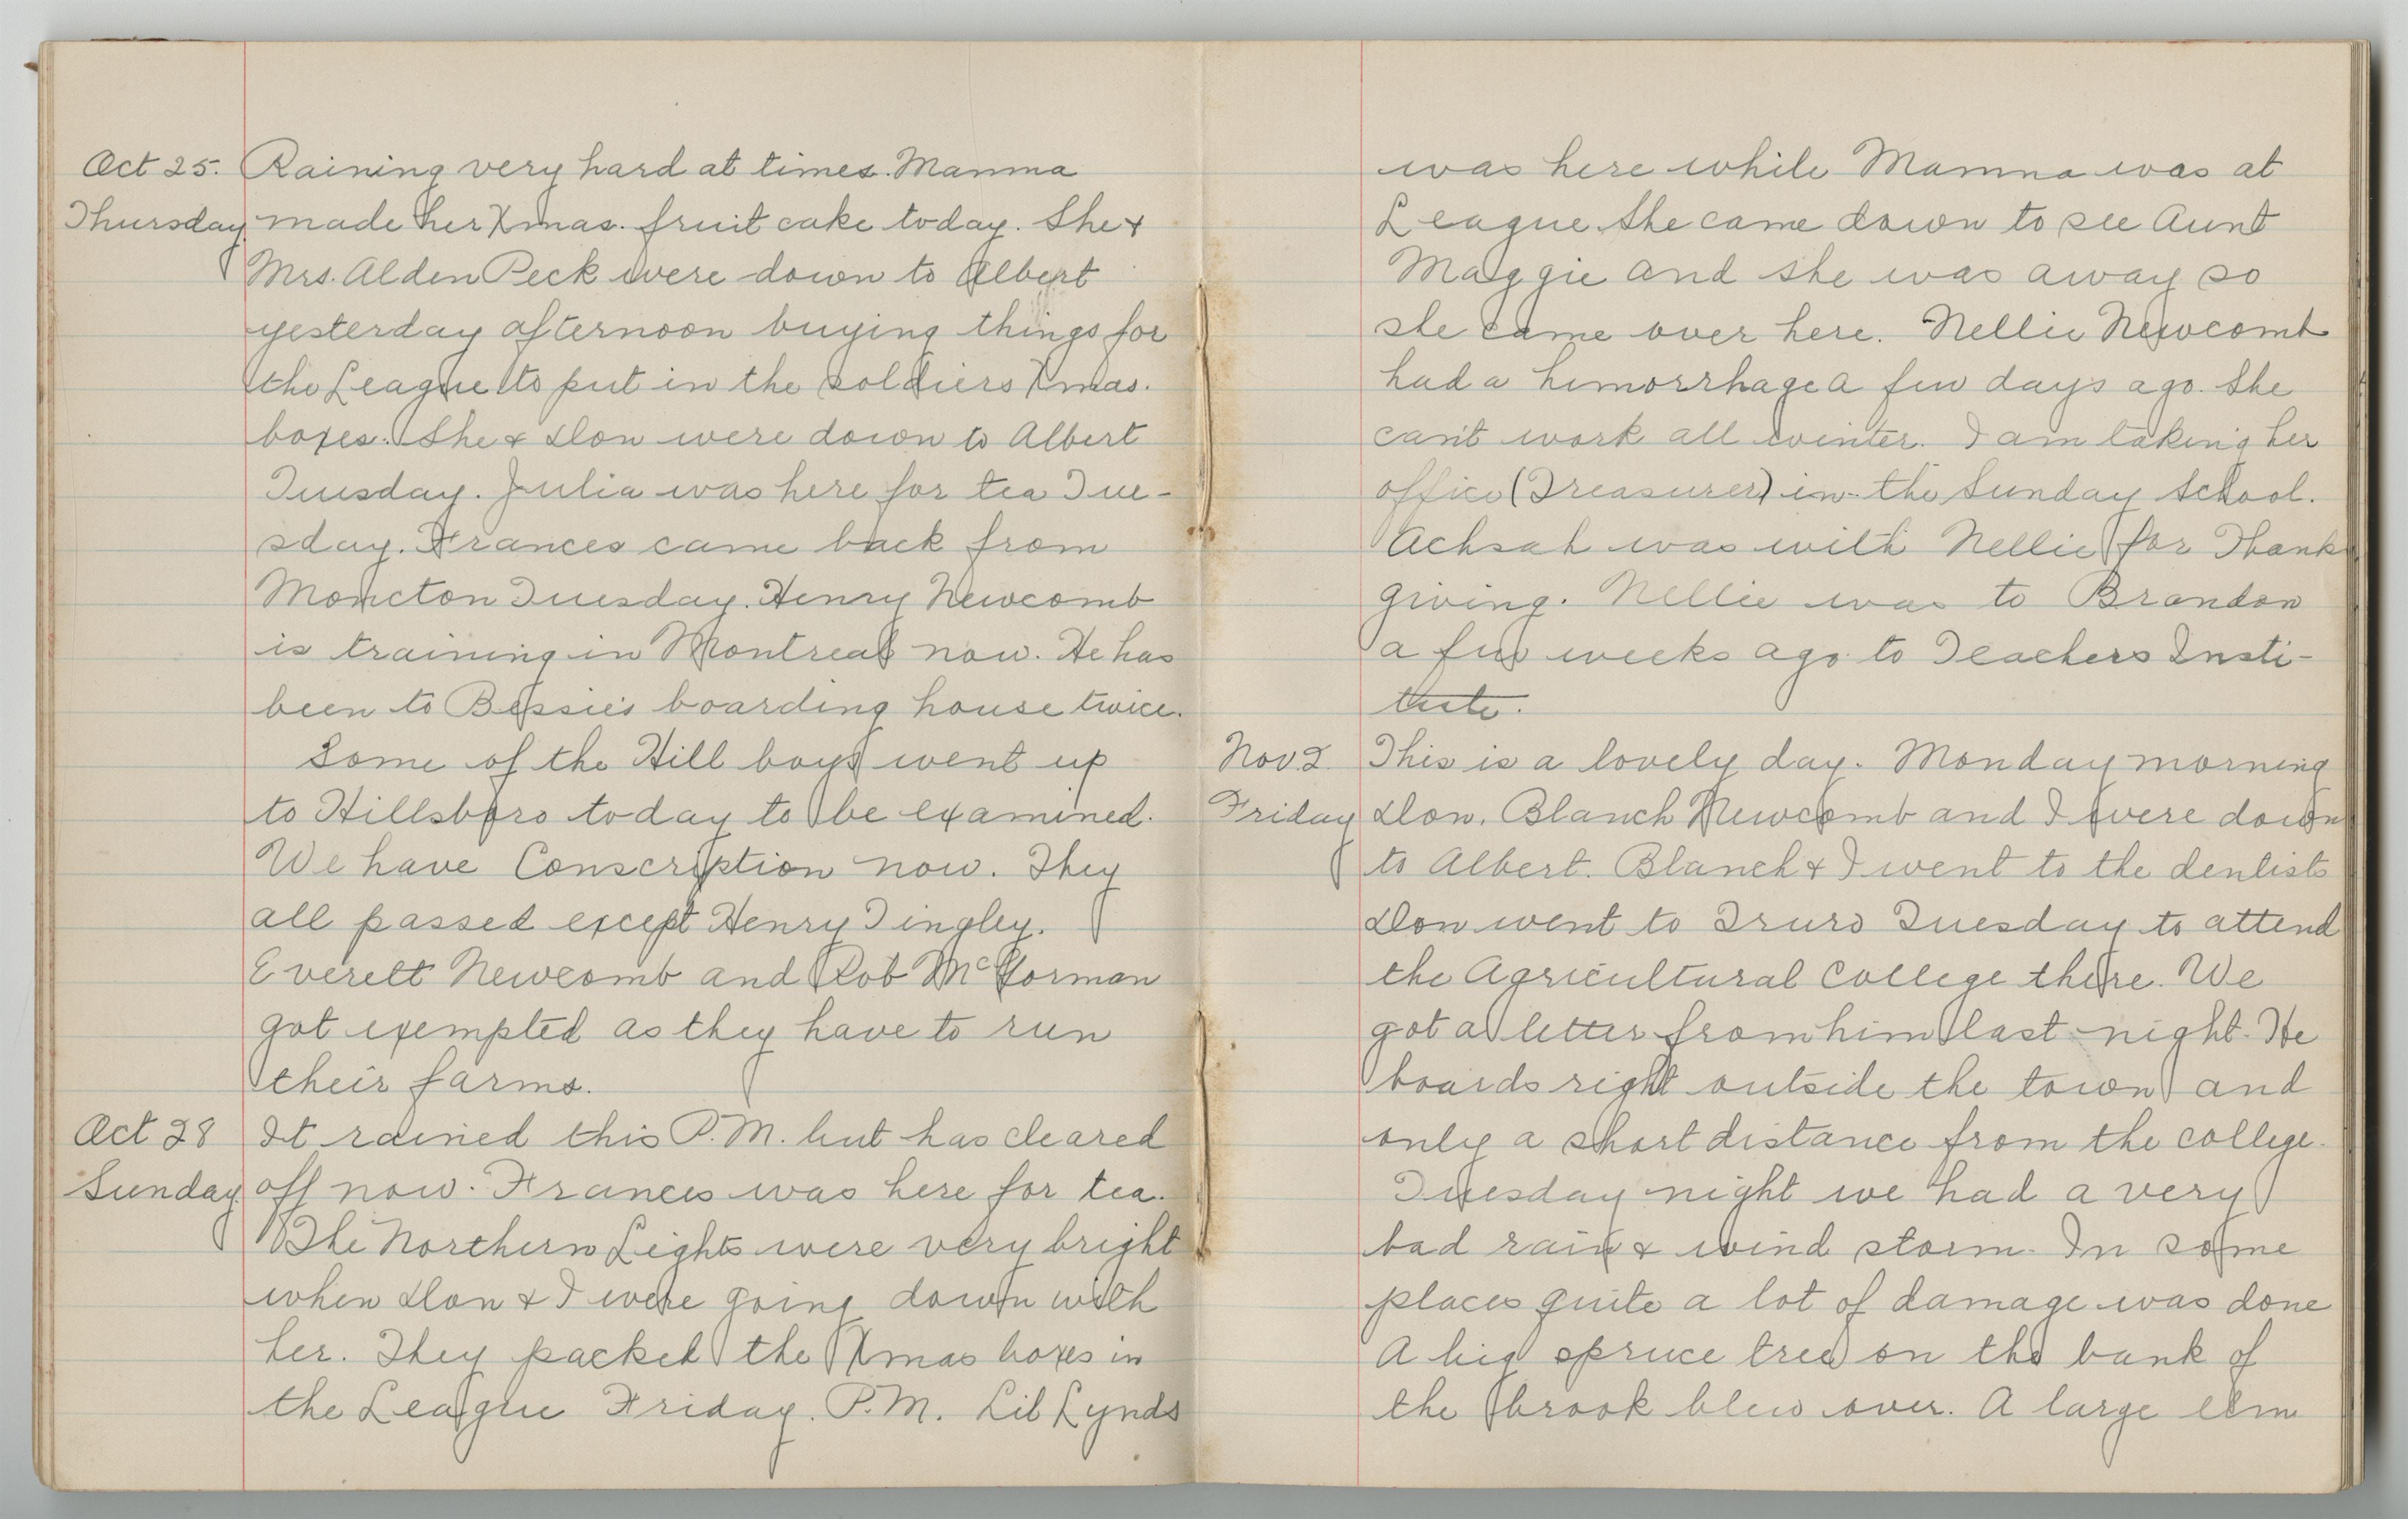 Oct 25. Raining very hard at times. Mamma
Thursday made her Xmas. fruit cake today. She &
Mrs. Alden Peck were down to Albert
yesterday afternoon buying things for
the League to put in the soldiers Xmas.
boxes. She & Don were down to Albert
Tuesday. Julia was here for tea Tue-
sday. Frances came back from
Moncton Tuesday. Henry Newcomb
is training in Montreal now. He has
been to Bessie's boarding house twice.
Some of the Hill boys went up
to Hillsboro today to be examined.
We have Conscription now. They
all passed except Henry Tingley.
Everett Newcomb and Rob McGorman
got exempted as they have to run
their farms.
Oct 28 It rained this P.M. but has cleared
Sunday off now. Frances was here for tea.
The Northern Lights were very bright
when Don & I were going down with
her. They packed the Xmas boxes in
the League Friday. P.M. Lib Lynds
was here while Mamma was at
League. She came down to see Aunt
Maggie and she was away so
she came over here. Nellie Newcomb
had a himorrhage a few days ago. She
can't work all winter. I am taking her
office (Treasurer) in the Sunday School.
Achsah was with Nellie for Thanks
giving. Nellie was to Brandon
a few weeks ago to Teachers Insti-
tute.
Nov. 2. This is a lovely day. Monday morning
Friday Don, Blanch Newcomb and I were down
to Albert. Blanch & I went to the dentists
Don went to Truro Tuesday to attend
the Agricultural College there. We
got a letter from him last night. He
boards right outside the town and
only a short distance from the college.
Tuesday night we had a very
bad rain & wind storm. In some
places quite a lot of damage was done
A big spruce tree on the bank of
the brook blew over. A large elm